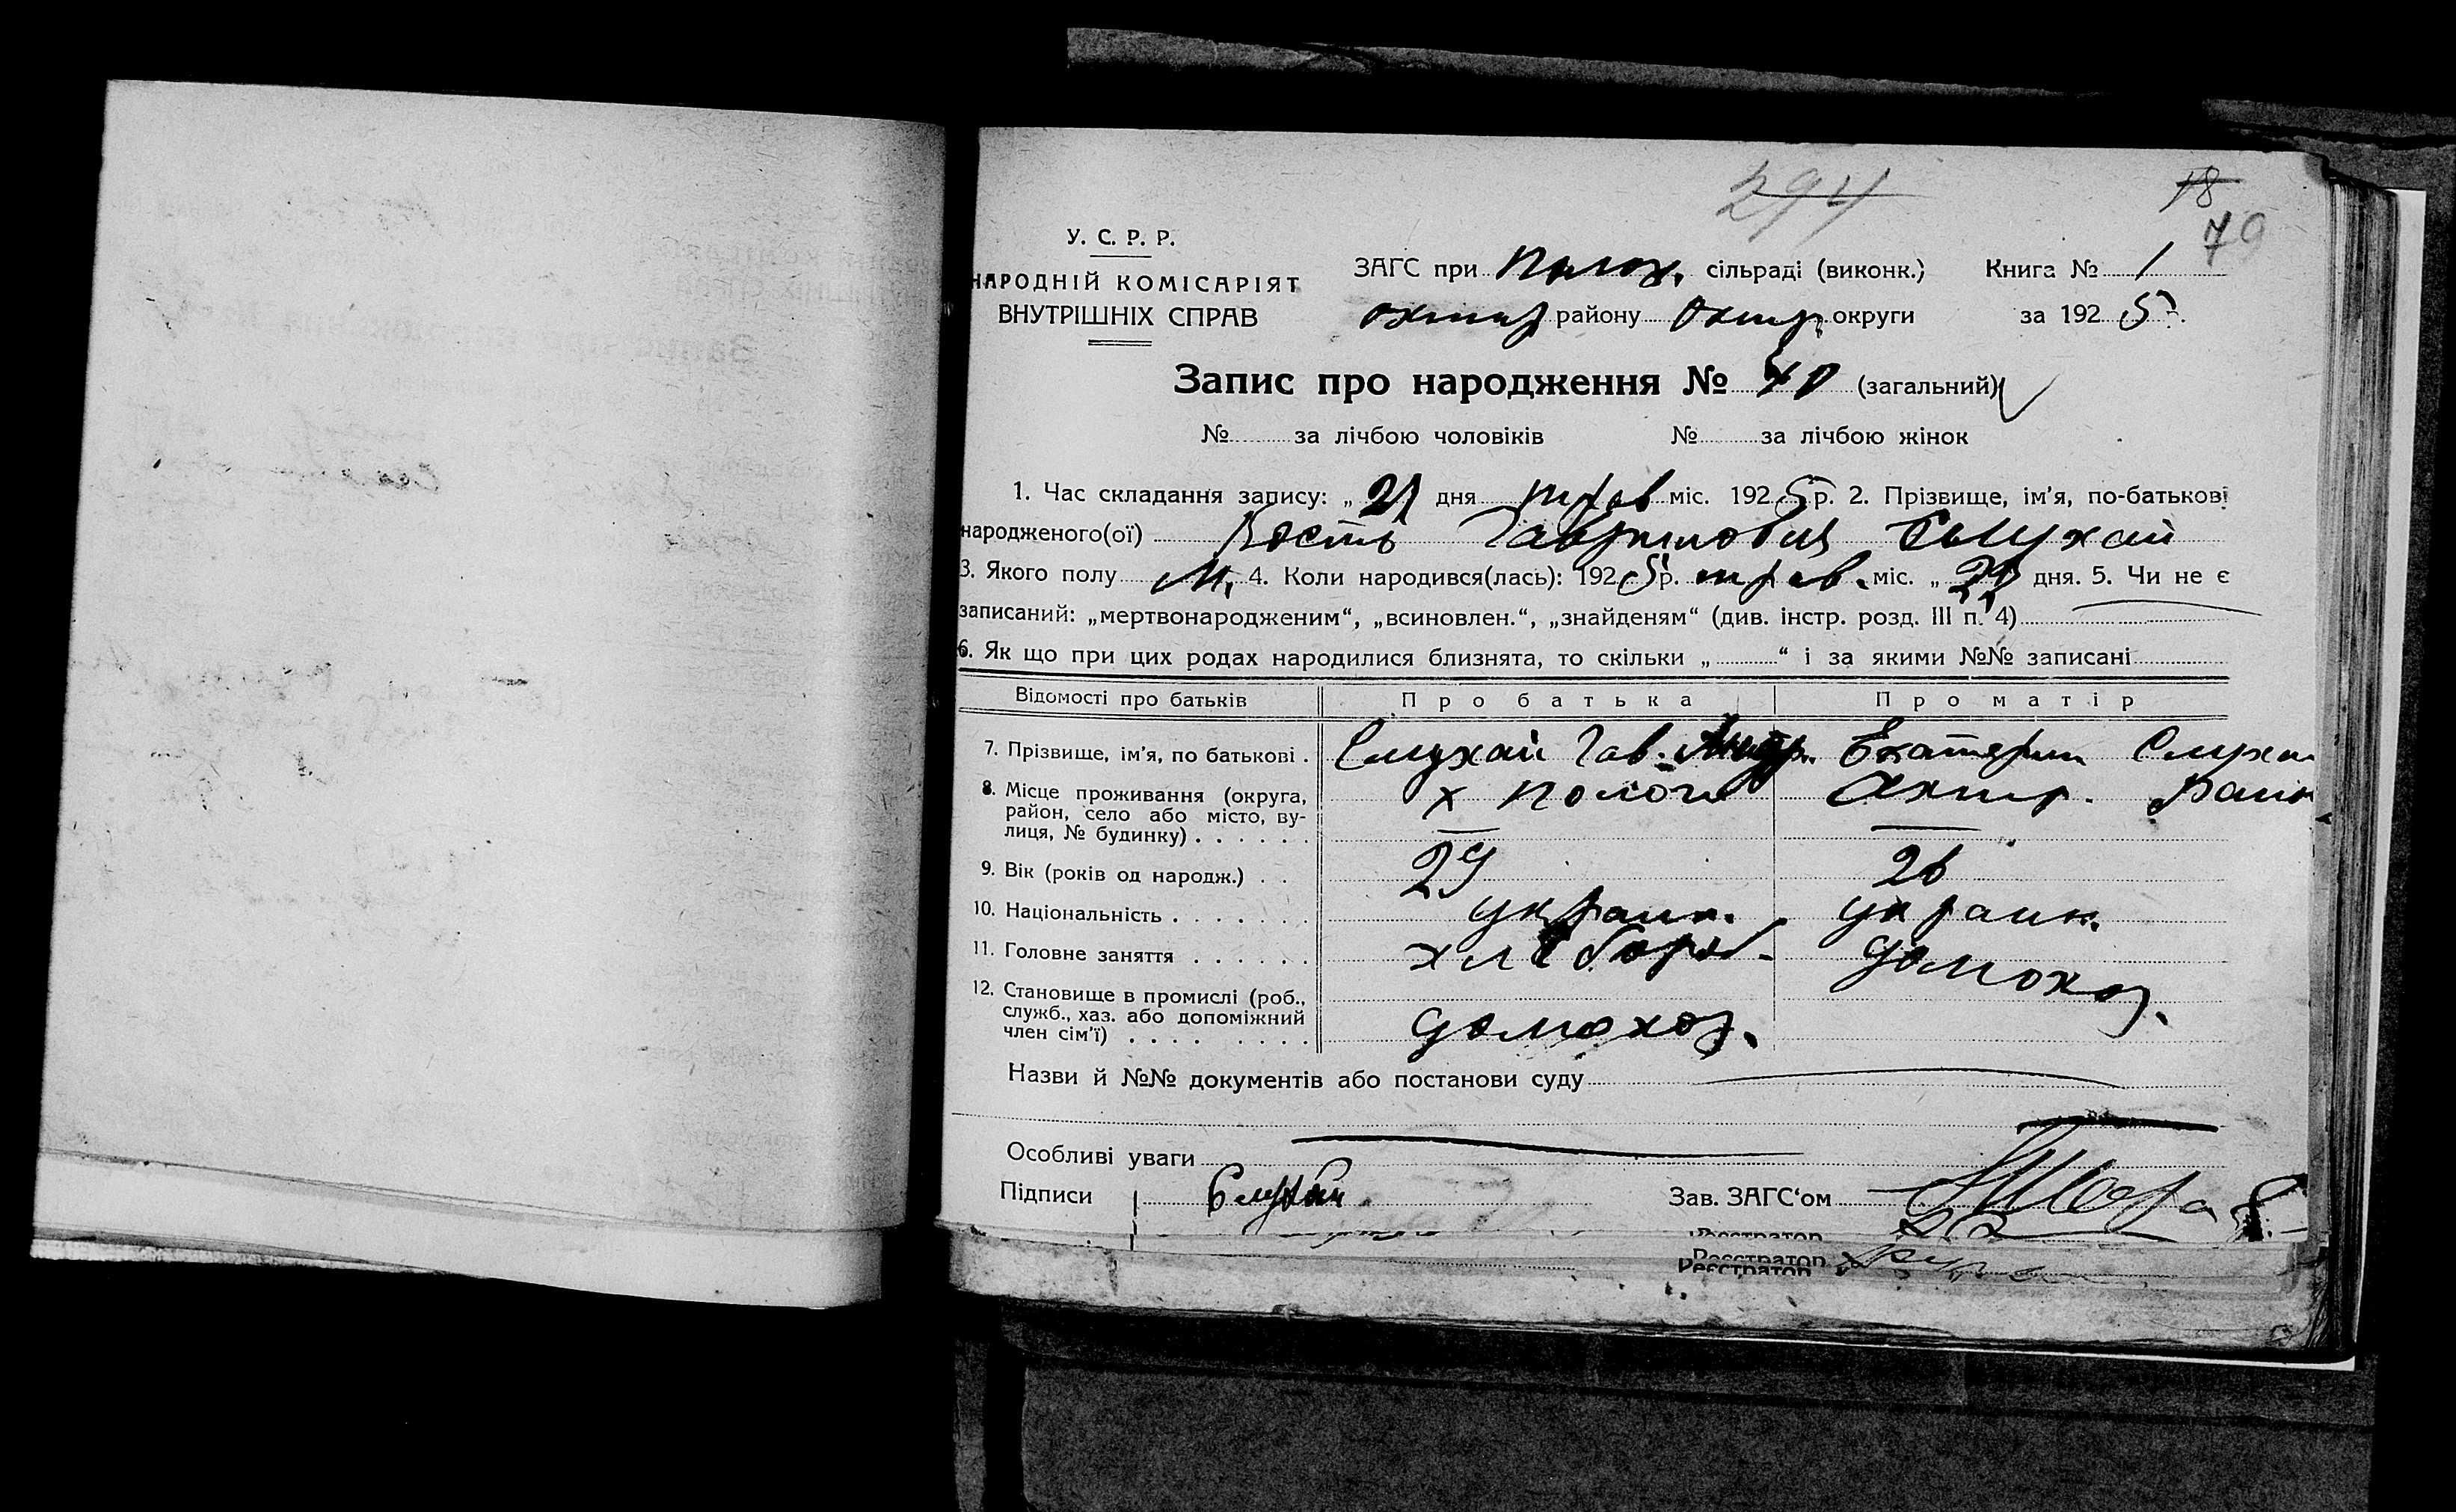 294
18
79
У. С. Р. Р.
НАРОДНІЙ КОМІСАРІЯТ
ВНУТРІШНІХ СПРАВ
ЗАГС при Полоз. сільраді (виконк.) Книга № 1
Охтир району Охтир округи за 192 5.
Запис про народження № 40 (загальний)
№ за лічбою чоловіків № за лічбою жінок
1. Час складання запису: „ 21 дня трав міс. 192 5 р. 2. Прізвище, ім'я, по-батькові
народженого(ої) Кость Гаврилович Слухай
3. Якого полу М. 4. Коли народився(лась): 192 5 р. трав. міс. „ дня. 5. Чи не є
записаний: „мертвонародженим“, „всиновлен.“, „знайденям“ (див. інстр. розд. III п. 4)
6. Як що при цих родах народилися близнята, то скільки „ “ і за якими №№ записані
Відомості про батьків Про батька Про матір
7. Прізвище, ім'я, по батькові . Слухай Гав. Екатерин Слухай
8. Місце проживання (округа, х Полози Ахтир. Район
район, село або місто, ву-
лиця, № будинку) . . . . . .
9. Вік (років од народж.) . . 29 26
10. Національність . . . . . . . украин. украин.
11. Головне заняття . . . . . . хлібороб. домохоз.
12. Становище в промислі (роб.,
служб., хаз. або допоміжний
член сім'ї) . . . . . . . . домохоз.
Назви й №№ документів або постанови суду
Особливі уваги
Підписи Слухай Зав. ЗАГС‘ом
Реєстратор
Реєстратор
Реєстратор